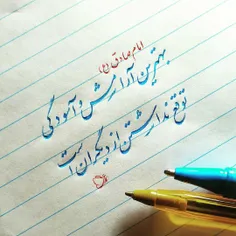 امام صادق (ع)
بهترین آرامش و آسودگی
توقع نداشتن از دیگران است